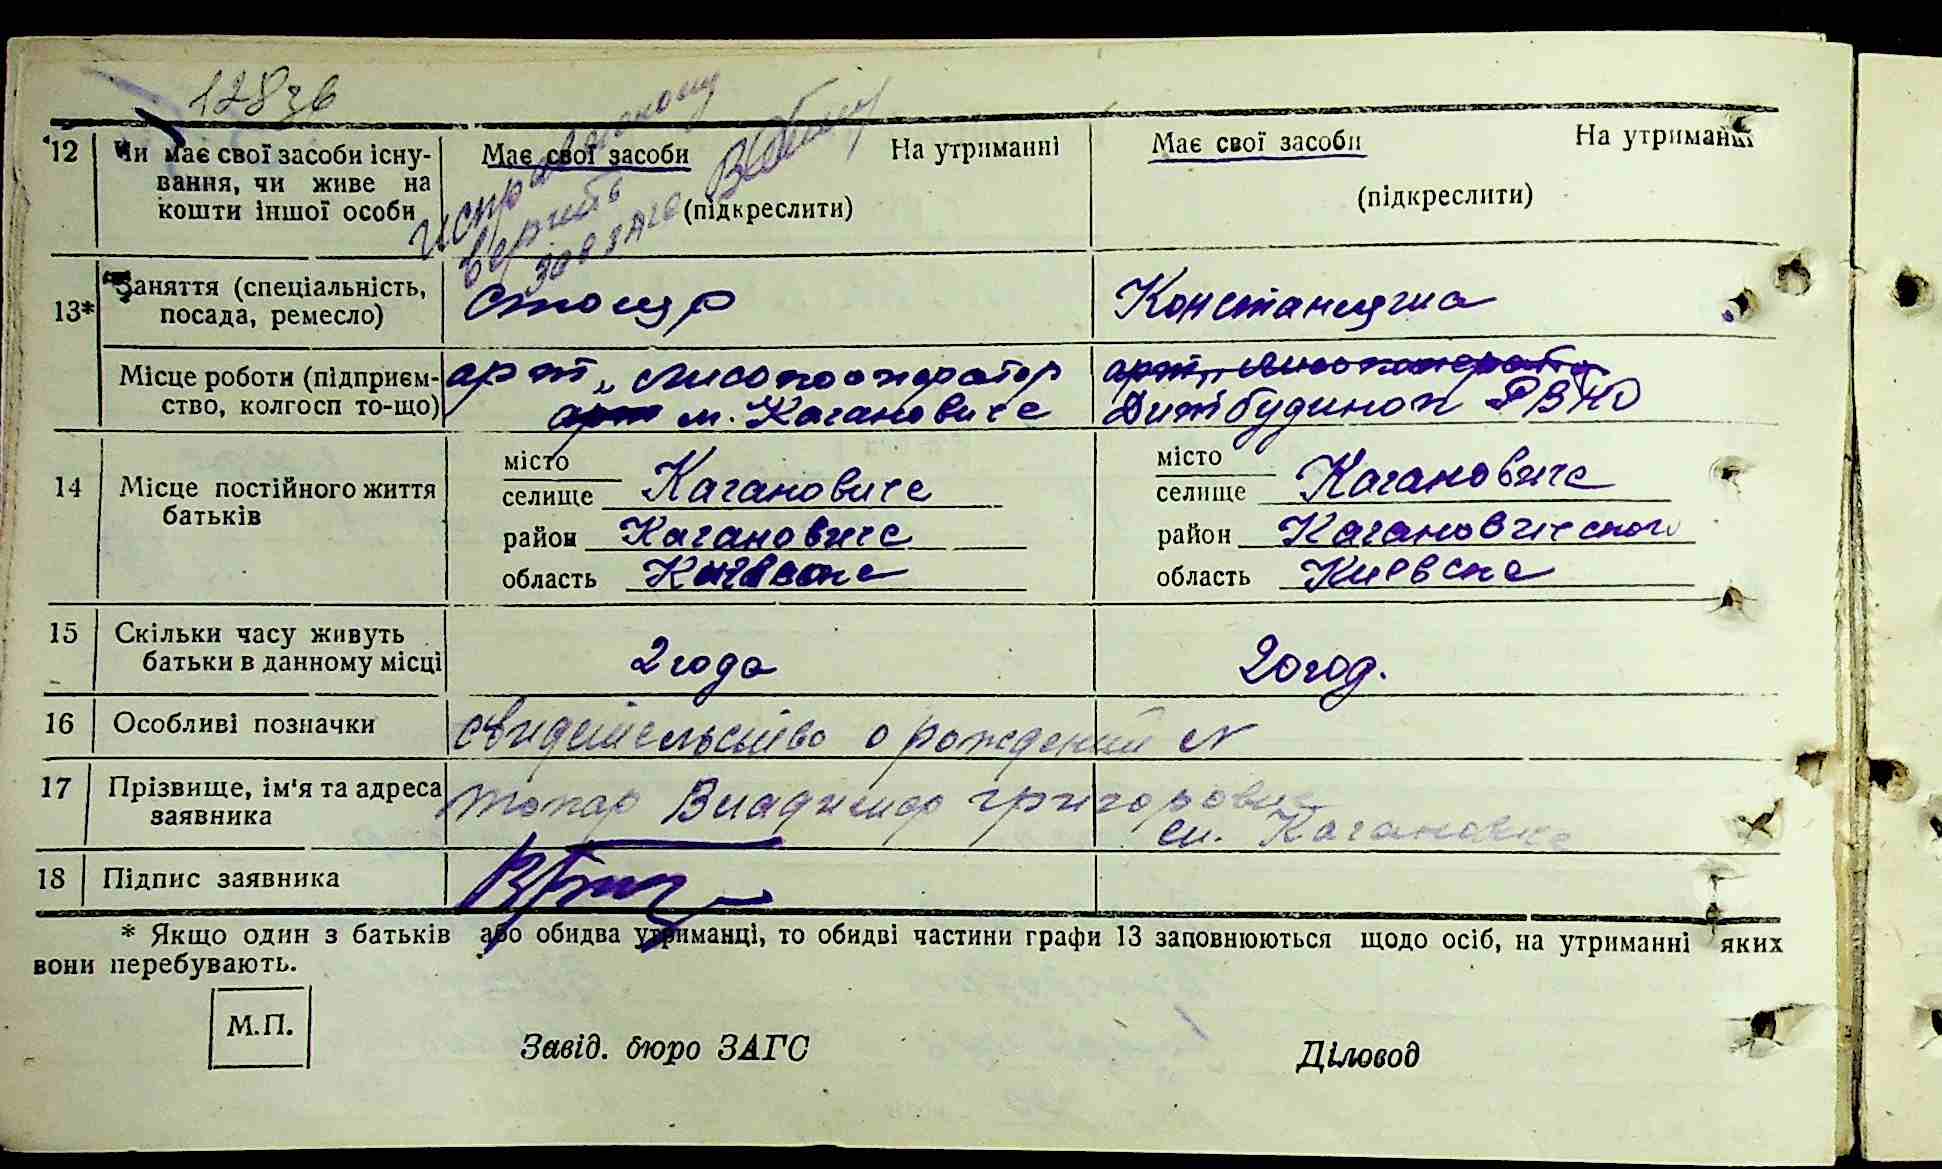 128зв
исправленому
верить
зав загс
12 Чи має свої засоби існу-
вання, чи живе на
кошти іншої особи
Має свої засоби На утриманні
(підкреслити)
Має свої засоби На утриманні
(підкреслити)
13* Заняття (спеціальність,
посада, ремесло)
столяр
Місце роботи (підприєм-
ство, колгосп то-що)
арт. „
арт м. Кагановиче
арт. „
Дитбудинок РВНО
14 Місце постійного життя
батьків
місто
селище Кагановиче
район Кагановиче
область
місто
селище Кагановиче
район
область Киевске
15 Скільки часу живуть
батьки в данному місці
2 года
20 год.
16 Особливі позначки
свидетельство о рождений N
17 Прізвище, ім'я та адреса
заявника
Владимир Григорович
см. Кагановиче
18 Підпис заявника
* Якщо один з батьків або обидва утриманці, то обидві частини графи 13 заповнюються щодо осіб, на утриманні яких
вони перебувають.
М.П.
Завід. бюро ЗАГС
Діловод